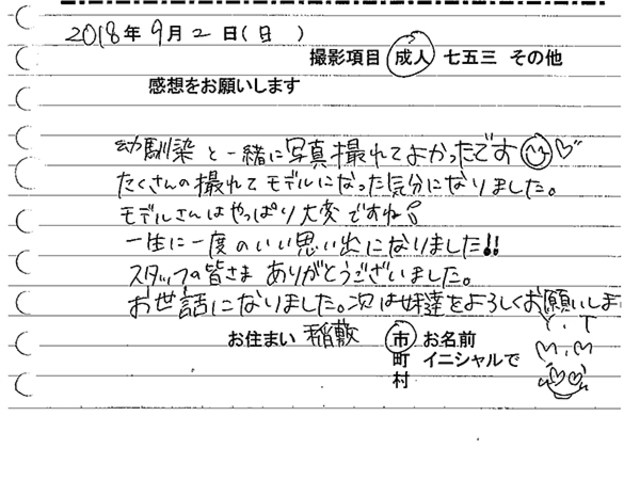 2018年9月2日(日)
撮影項目 成人 七五三 その他
感想をお願いします
幼馴染と一緒に写真撮れてよかったです
たくさんの撮れてモデルになった気分になりました。
モデルさんはやっぱり大変ですね!
一生に一度のいい思い出になりました!!
スタッフの皆さま ありがとうございました。
お世話になりました。次は妹達をよろしくお願いしま
お住まい 稲敷 市 お名前 Y.T
町 イニシャルで M.M
村